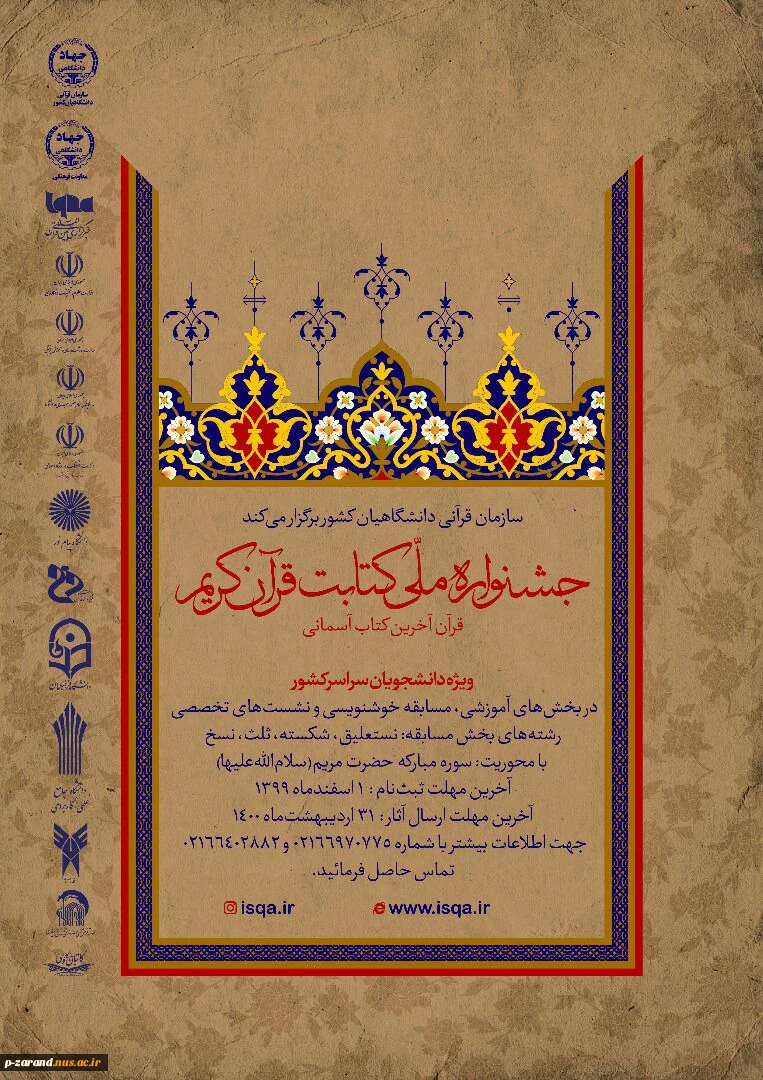 سازمان قرآنی دانشگاهیان کشور برگزار می‌کند
جشنواره ملّی کتابت قرآن کریم
قرآن آخرین کتاب آسمانی
ویژه دانشجویان سراسر کشور
در بخش‌های آموزشی، مسابقه خوشنویسی و نشست‌های تخصصی
رشته‌های بخش مسابقه: نستعلیق، شکسته، ثلث، نسخ
با محوریت: سوره مبارکه حضرت مریم (سلام‌الله‌علیها)
آخرین مهلت ثبت‌نام : ۱ اسفندماه ۱۳۹۹
آخرین مهلت ارسال آثار : ۳۱ اردیبهشت‌ماه ۱۴۰۰
جهت اطلاعات بیشتر با شماره ۰۲۱۶۶۹۷۰۷۷۵ و ۰۲۱۶۶۴۰۲۸۸۲
تماس حاصل فرمائید.
isqa.ir www.isqa.ir
جهاد
دانشگاهی
سازمان قرآنی
دانشگاهیان کشور
جهاد
دانشگاهی
معاونت فرهنگی
iqna
دانشگاه پیام نور
دانشگاه فرهنگیان
دانشگاه جامع
علمی کاربردی
p-zarand.nus.ac.ir